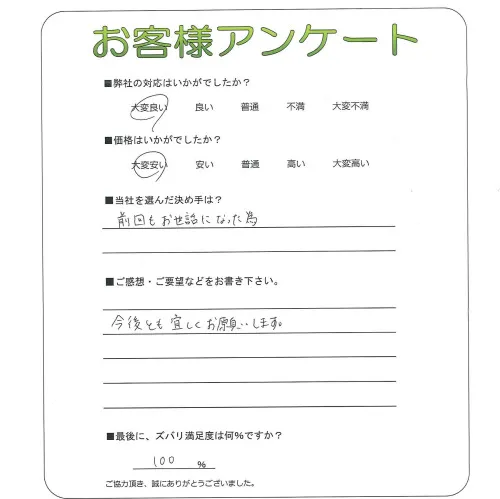 お客様アンケート
■弊社の対応はいかがでしたか？
大変良い 良い 普通 不満 大変不満
■価格はいかがでしたか？
大変安い 安い 普通 高い 大変高い
■当社を選んだ決め手は？
前回もお世話になった為
■ご感想・ご要望などをお書き下さい。
今後とも宜しくお願いします。
■最後に、ズバリ満足度は何%ですか？
100 %
ご協力頂き、誠にありがとうございました。